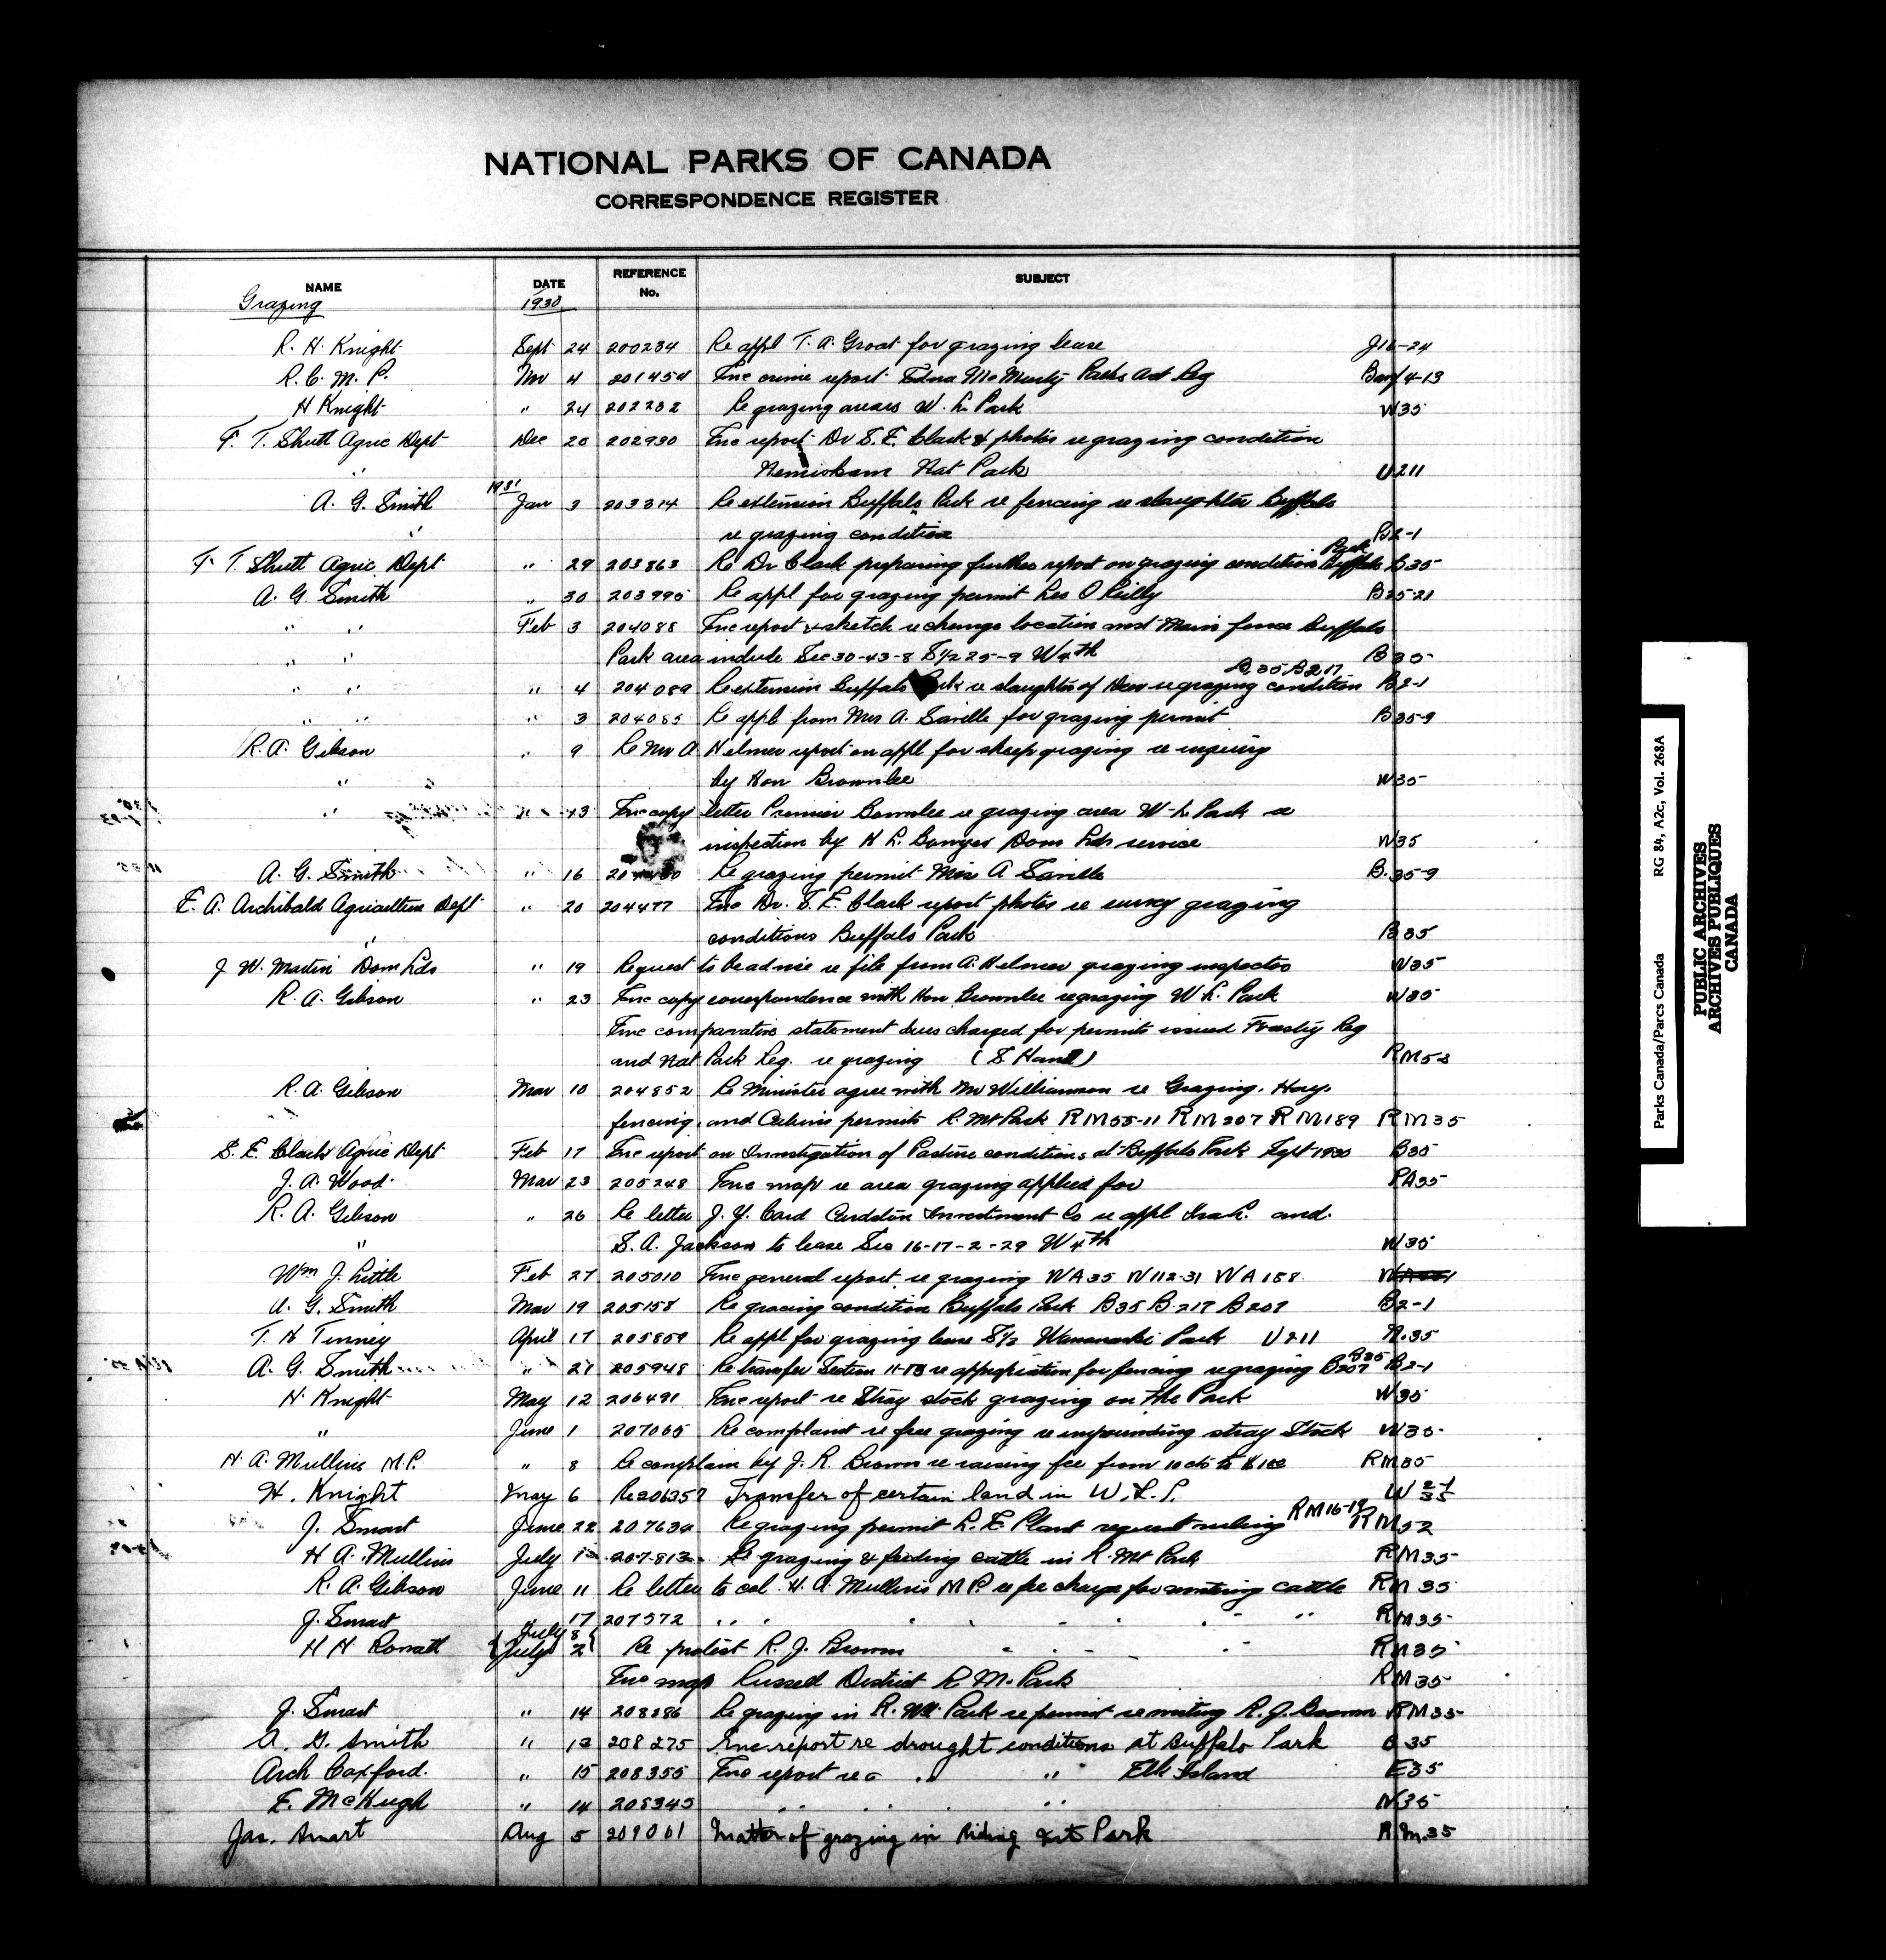 NATIONAL PARKS OF CANADA
CORRESPONDENCE REGISTER
NAME DATE REFERENCE No. SUBJECT
Grazing 1930
R. H. Knight Sept 24 200234 Re appl T. A. Groat for grazing lease J16-24
R. C. M. P. Nov 4 201454 Enc crime report Edna McMurty Parks Act Reg Banf 4-13
H Knight " 24 202232 Re grazing areas W. L. Park W35
F. T. Shutt Agric Dept Dec 20 202930 Enc report Dr S. E. Clark & photos re grazing condition
" Nemiskam Nat Park U211
1931
A. G. Smith Jan 3 203314 Re extension Buffalo Park re fencing re slaughter Buffalo
" re grazing condition B2-1
F. T. Shutt Agric Dept " 29 203863 Re Dr Clark preparing further report on grazing condition Buffalo Park B35
A. G. Smith " 30 203995 Re appl for grazing permit Les O Reilly B35-21
" " Feb 3 204088 Enc report & sketch re change location and Main fence Buffalo
" " Park area include Sec 30-43-8 S1/2 25-9 W4th B35
B35 B217
" " " 4 204089 Re extension Buffalo Park re slaughter of Deer re grazing condition B2-1
" " " 3 204085 Re appl from Mrs A. Saville for grazing permit B35-9
R. A. Gibson " 9 Re Mr A Helmer report on appl for sheep grazing re inquiry
" by Hon Brownlee W35
" " 13 Enc copy letter Premier Brownlee re grazing area W-L Park re
inspection by H L. Dom Lds service W35
A. G. Smith " 16 Re grazing permit Miss A Saville B.35-9
E. A. Archibald Agriculture Dept " 20 204477 Enc Dr. S. E. Clark report photos re survey grazing
" conditions Buffalo Park B35
J. W. Martin Dom Lds " 19 Request to be advise re file from A. Helmer grazing inspector W35
R. A. Gibson " 23 Enc copy correspondence with Hon Brownlee re grazing W L. Park W35
Enc comparative statement dues charged for permits issued Forestry Reg
and Nat Park Reg. re grazing (S Hand) RM53
R. A. Gibson Mar 10 204852 Re Minister agree with Mr Williamson re Grazing. Hay.
fencing, and Cabins permits R. Mt Park RM55-11 RM307 RM189 RM35
S. E. Clark Agric Dept Feb 17 Enc report on Investigation of Pasture conditions at Buffalo Park Sept 1930 B35
J. A. Wood Mar 23 205248 Enc map re area grazing applied for PA35
R. A. Gibson " 26 Re letter J. Y. Card Cardston Investment Co re appl Ira L. and.
" S. A. Jackson to lease Sec 16-17-2-29 W4th W35
Wm J. Little Feb 27 205010 Enc general report re grazing WA35 W112-31 WA158
A. G. Smith Mar 19 205158 Re grazing condition Buffalo Park B35 B-217 B209 B2-1
T. H Tinney April 17 205859 Re appl for grazing lease S1/2 Wawaskesi Park U211 N.35
A. G. Smith " 27 205948 Re transfer Section 11-13 re appropriation for fencing re grazing B207 B35 B2-1
H Knight May 12 206491 Enc report re Stray stock grazing on the Park W35
" June 1 207065 Re complaint re free grazing re impounding stray Stock W35
H. A. Mullins M.P. " 8 Re complain by J. R. Brown re raising fee from 10 cts to $1.00 RM35
H. Knight May 6 Re 206357 Transfer of certain land in W. L. P. W 2-1 35
J. Smart June 22 207634 Re grazing permit L. E. Plant request ruling RM16-19 RM52
H A. Mullins July 207813 Re grazing & feeding cattle in R. Mt Park RM35
R. A. Gibson June 11 Re letter to col. H. A. Mullins M.P. re fee charge for wintering cattle RM 35
J. Smart 17 207572 " " " " RM35
July 8
H H Rowatt July 2 Re protest R. J. Brown " " " RM35
Enc map Russell District R. M. Park RM35
J. Smart " 14 208286 Re grazing in R. Mt. Park re permit re R. J. Brown RM35
A. G. Smith " 13 208275 Enc. report re drought conditions at Buffalo Park B 35
Arch Coxford. " 15 208355 Enc report re " " Elk Island E35
E. McHugh " 14 208345 " " " N35
Jas. Smart Aug 5 209061 Matter of grazing in Riding Mt Park R.M.35
Parks Canada/Parcs Canada RG 84, A2c, Vol. 268A
PUBLIC ARCHIVES
ARCHIVES PUBLIQUES
CANADA